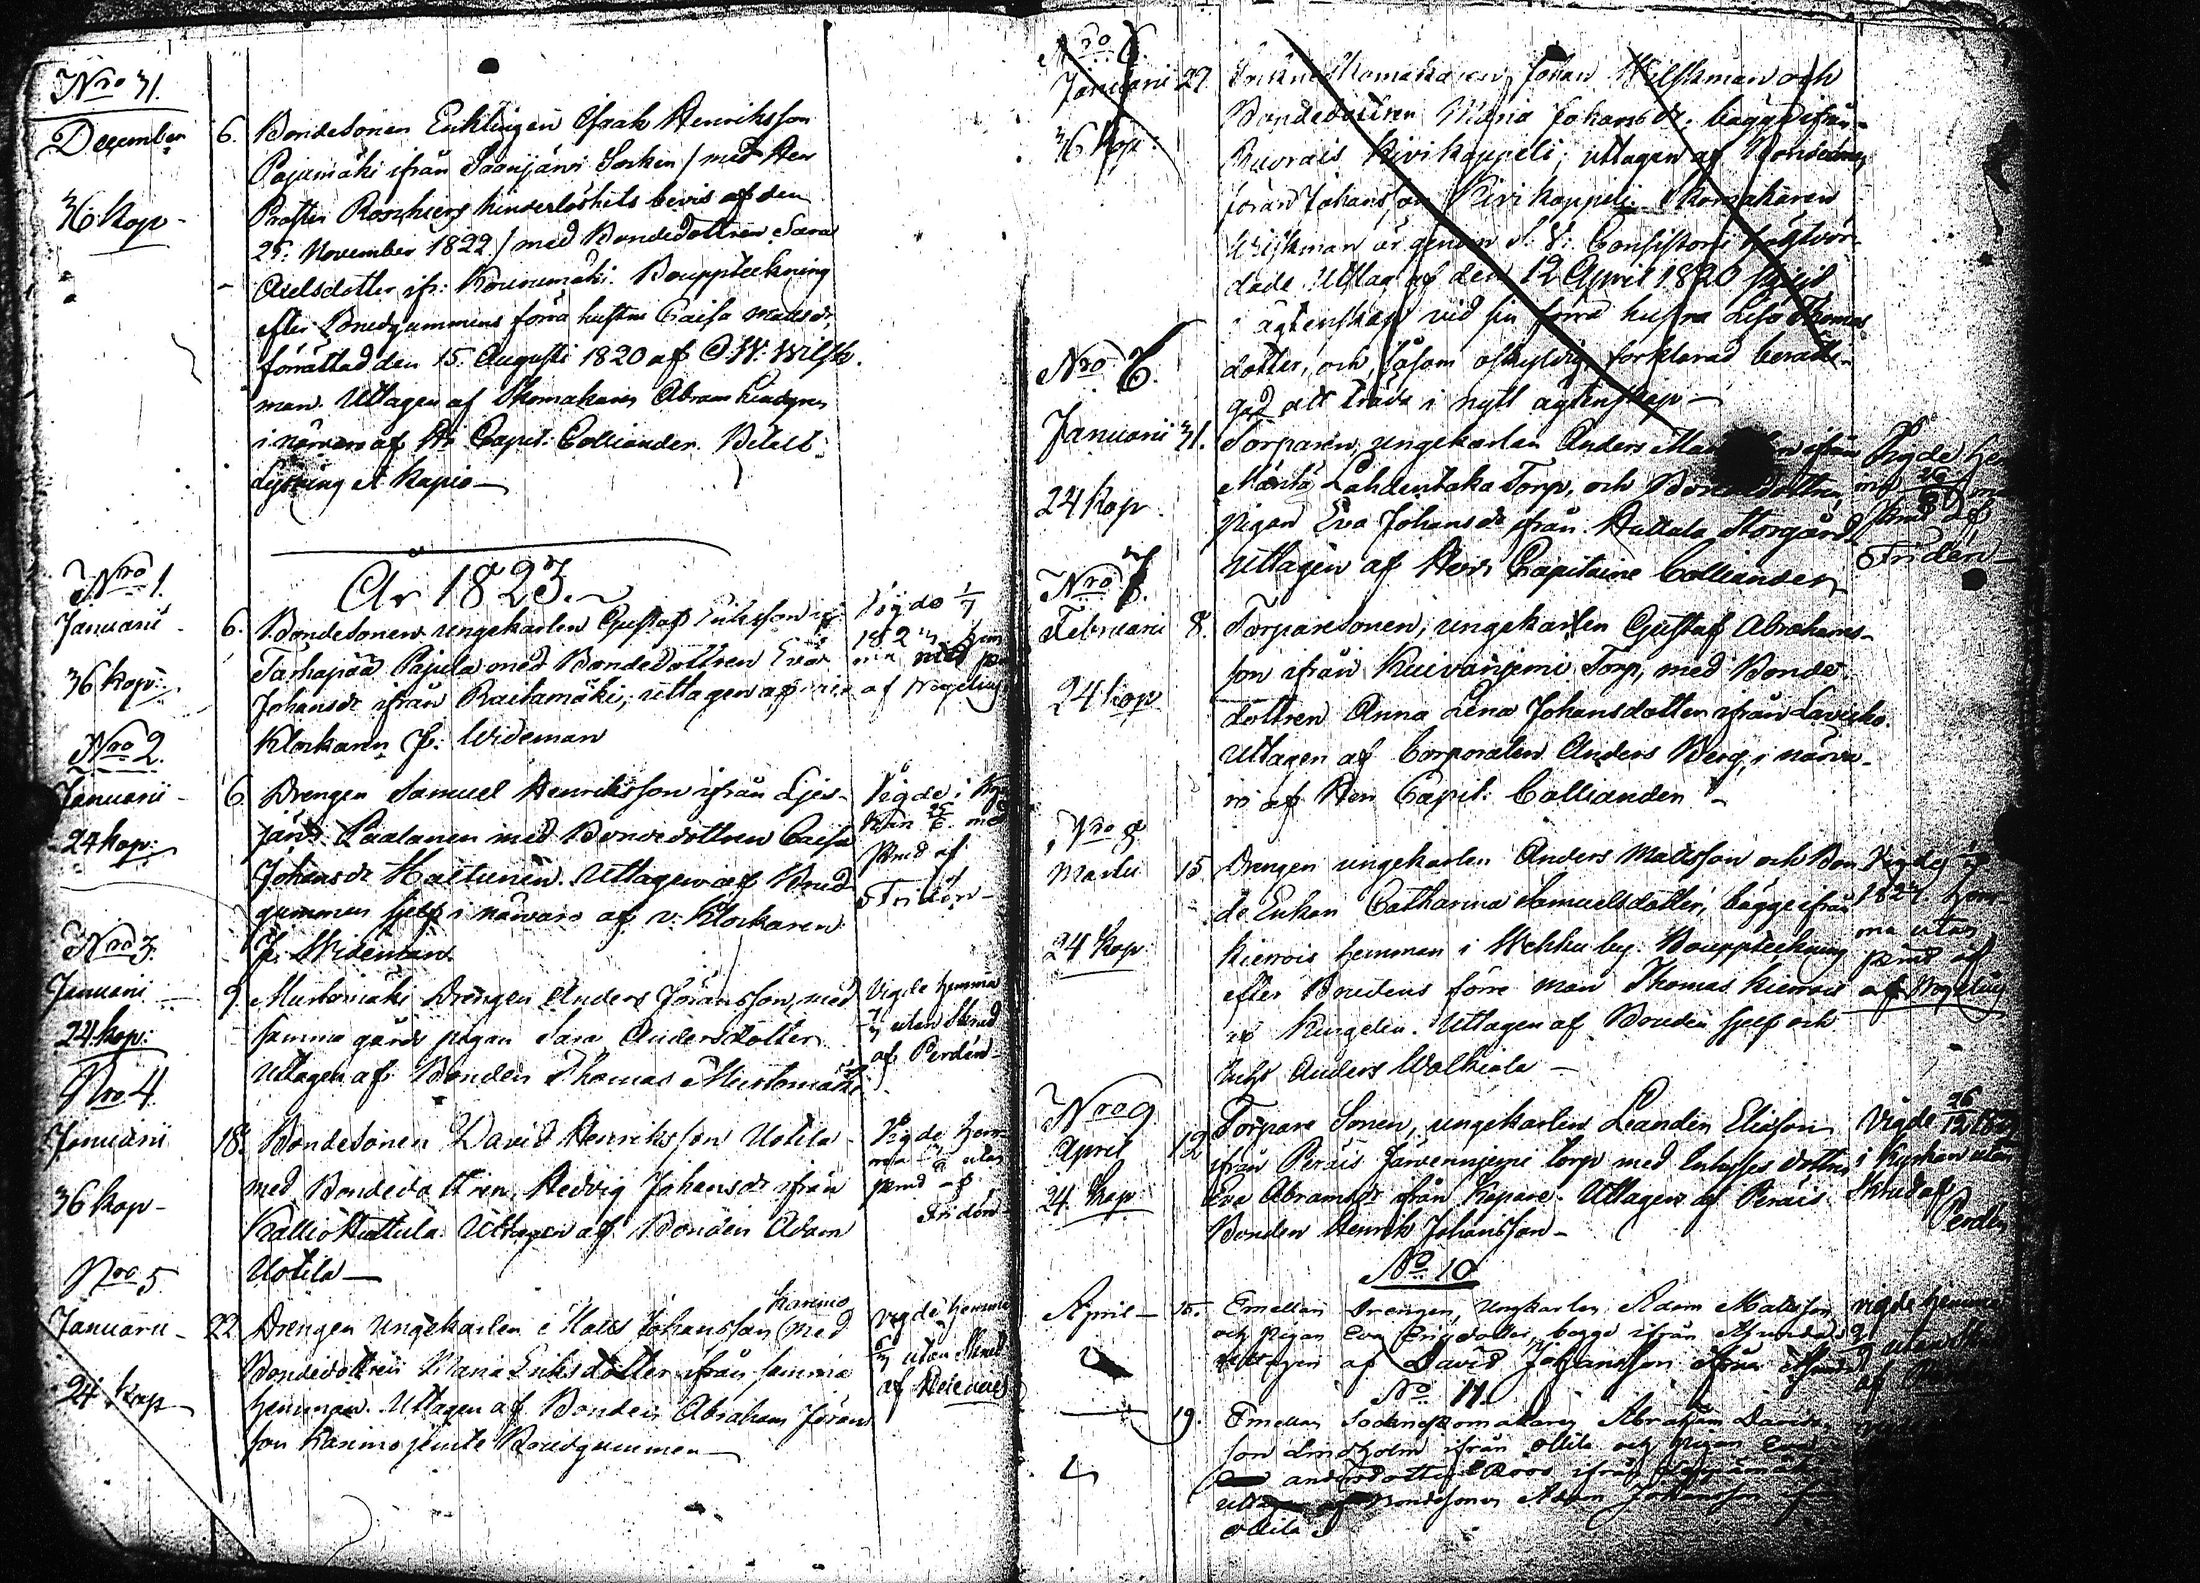 Nro 31.
December 6. Bondesonen Enklingen Israk Henriksson
Pajumäki ifrån Saarijärvi Sockn / med Herr
36 kop - Prosten Roschiers hinderlöshets bevis af den
25. November 1822 / med Bondedottren Sara
Axelsdotter ifr: Kourumäki. Bouppteckning
efter Brudgummens förra hustru Caisa Mattsdr
förrättad den 15. Augusti 1820 af C. W: Wilsk-
man. Uttagen af Skomakaren Abram Lindgren
i närvaro af Hr Capit: Colliander. Betalt
Lysning et Kapio —
År 1823.
Nro 1.
Januarii 6. Bondesonen ungekarlen Gustaf Eriksson
Tarhapää Pajula med Bondedottren Eva
36 kop: Johansdr ifrån Raitamäki, uttagen af
Klockaren J. Wideman
Vigde 1/7
1823 hem
ma med
af Wogelius
Nro 2.
Januarii - 6 Drengen Samuel Henriksson ifrån Ljes-
järvi Laalanen med Bondedottren Caisa
24 kop: Johansdr Hattunen. Uttagen af Brud-
gummen sjelf i närvaro af v: Klockaren
J. Wideman
Vigde i Kyr
kan med
skrud af
Fridén -
Nro 3.
Januari 9. Mustomäki Drengen Anders Jöransson, med
24 kop: samma gårds pigan Sara Andersdotter
Uttagen af Bonden Thomas Mustomäki
Vigde hemma
utan Skrud
af Perdén -
Nro 4.
Januarii 18. Bondesonen David Henriksson Uotila
med Bondedottren Hedvig Johansdr ifrån
36 kop - Kallio Huttula Uttagen af Bonden Adam
Uotila —
Vigde hem-
ma utan
skrud af
Fridén
Nro 5
Januarii - 22 Drengen Ungekarlen Matts Johansson Kanino med
Bondedottren Maria Eriksdotter ifrån samma
24 kop hemman. Uttagen af Bonden Abraham Jörans
son Kanino jemte Brudgummen —
Vigde hemma
utan Skrud
af
Nro 6.
Januarii 27 Skomakaren Johan Wilskman och
Bondedottren Maria Johansdr: bägge ifrån
36 kop: Buorais Kivikappeli; uttagen af Bonden
Jöran Johansson Kivikappeli. Skomakaren
Wilskman är genom S. V: Consistorii högvör-
dade Utslag af den 12 April 1820 skild
i ägtenskap vid sin förra hustru Lisa Thomas
dotter, och, såsom oskyldig förklarad berätti-
gad att träda i nytt ägtenskap —
Nro 6.
Januarii 31. Torparen, ungekarlen Anders ifrån
Mäntä Lahdentaka Torp, och Bondedottren
24 kop pigan Eva Johansdr ifrån Huttula Storgård
uttagen af Herr Capitaine Colliander
Vigde hem
skrud af
Fridén -
Nro 7.
Februarii 8. Torparesonen, ungekarlen Gustaf Abrahams-
son ifrån Kuivaniemi Torp, med Bonde-
24 kop dottren Anna Lena Johansdotter ifrån Lavicko.
Uttagen af Corporalen Anders Berg, i närva-
ro af Herr Capit: Colliander -
Nro 8
Martii 15 Drengen ungekarlen Anders Mattsson och Bon
de Enkan Catharina Samuelsdotter, bägge ifrån
24 kop: Kierrois hemman i Wehku by. Bouppteckning
efter Brudens förre man Thomas Kierrois
af Kingelin. Uttagen af Bruden sjelf och
Anders Walkiala —
Vigde
1824. hem-
ma utan
skrud af
af Wogelius
Nro 9
April 12 Torpare Sonen, ungekarlen Leander Eliasson
ifrån Peräis Järvenniemi torp med Inhyses dottren
24 kop: Eva Abramsdr ifrån Kopare. Uttagen af Peräis
Bonden Henrik Johansson -
Vigde 26/12 1823
i Kyrkan utan
Skrud af
Perdén
No 10
April - 15. Emellan Drengen, ungkarlen Adam Mattsson
och pigan Eva Ericsdotter, begge ifrån
uttagen af David Johansson ifrån
vigde hemma
utan
af
No 11.
19. Emellan Sockneskomakaren Abraham Davids
son Lindholm ifrån Ollila och pigan Eva
Andersdotter Roos ifrån
uttagen af Bondesonen Adam Johansson
Ollila